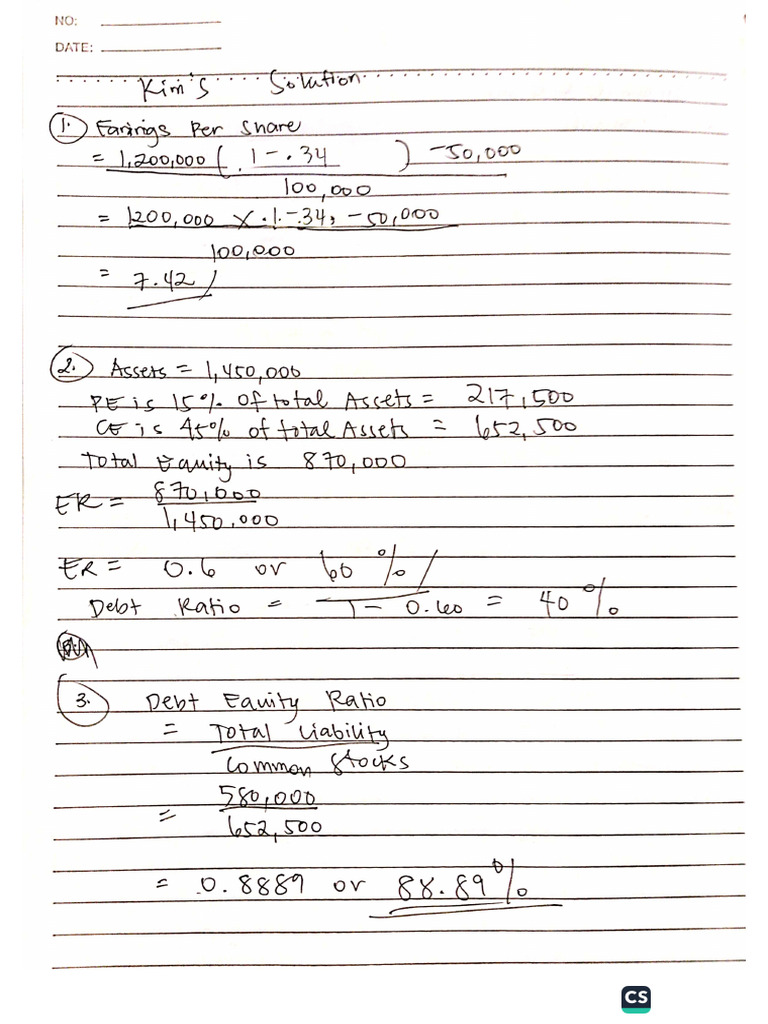 NO:
DATE:
Kim's Solution
1. Earings Per Share
= 1,200,000 ( .1 - .34 ) -50,000
100,000
= 1200,000 X .1.-.34, -50,000
100,000
= 7.42 /
2. Assets = 1,450,000
PE is 15% of total Assets = 217,500
CE is 45% of total Assets = 652,500
Total Equity is 870,000
ER = 870,000
1,450,000
ER = 0.6 or 60% /
Debt Ratio = 1 - 0.60 = 40%
3. Debt Equity Ratio
= Total Liability
Common Stocks
= 580,000
652,500
= 0.8889 or 88.89%
CS